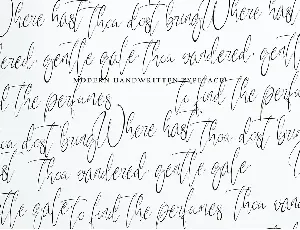 Where hast thou dost bring Where hast
dered gentle gale thou wandered gentle
MODERN HANDWRITTEN TYPEFACE
d the perfumes To find the perfumes
thou dost bring Where hast thou dost
thou wandered gentle gale
tle gale to find the perfumes thou wand